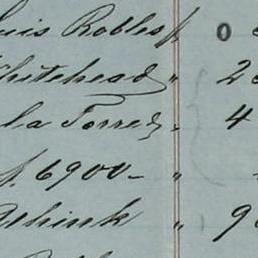 uis Robles f. 0
Whitehead " 2
la Torre "  4
f. 6900 - "
Schink " 9